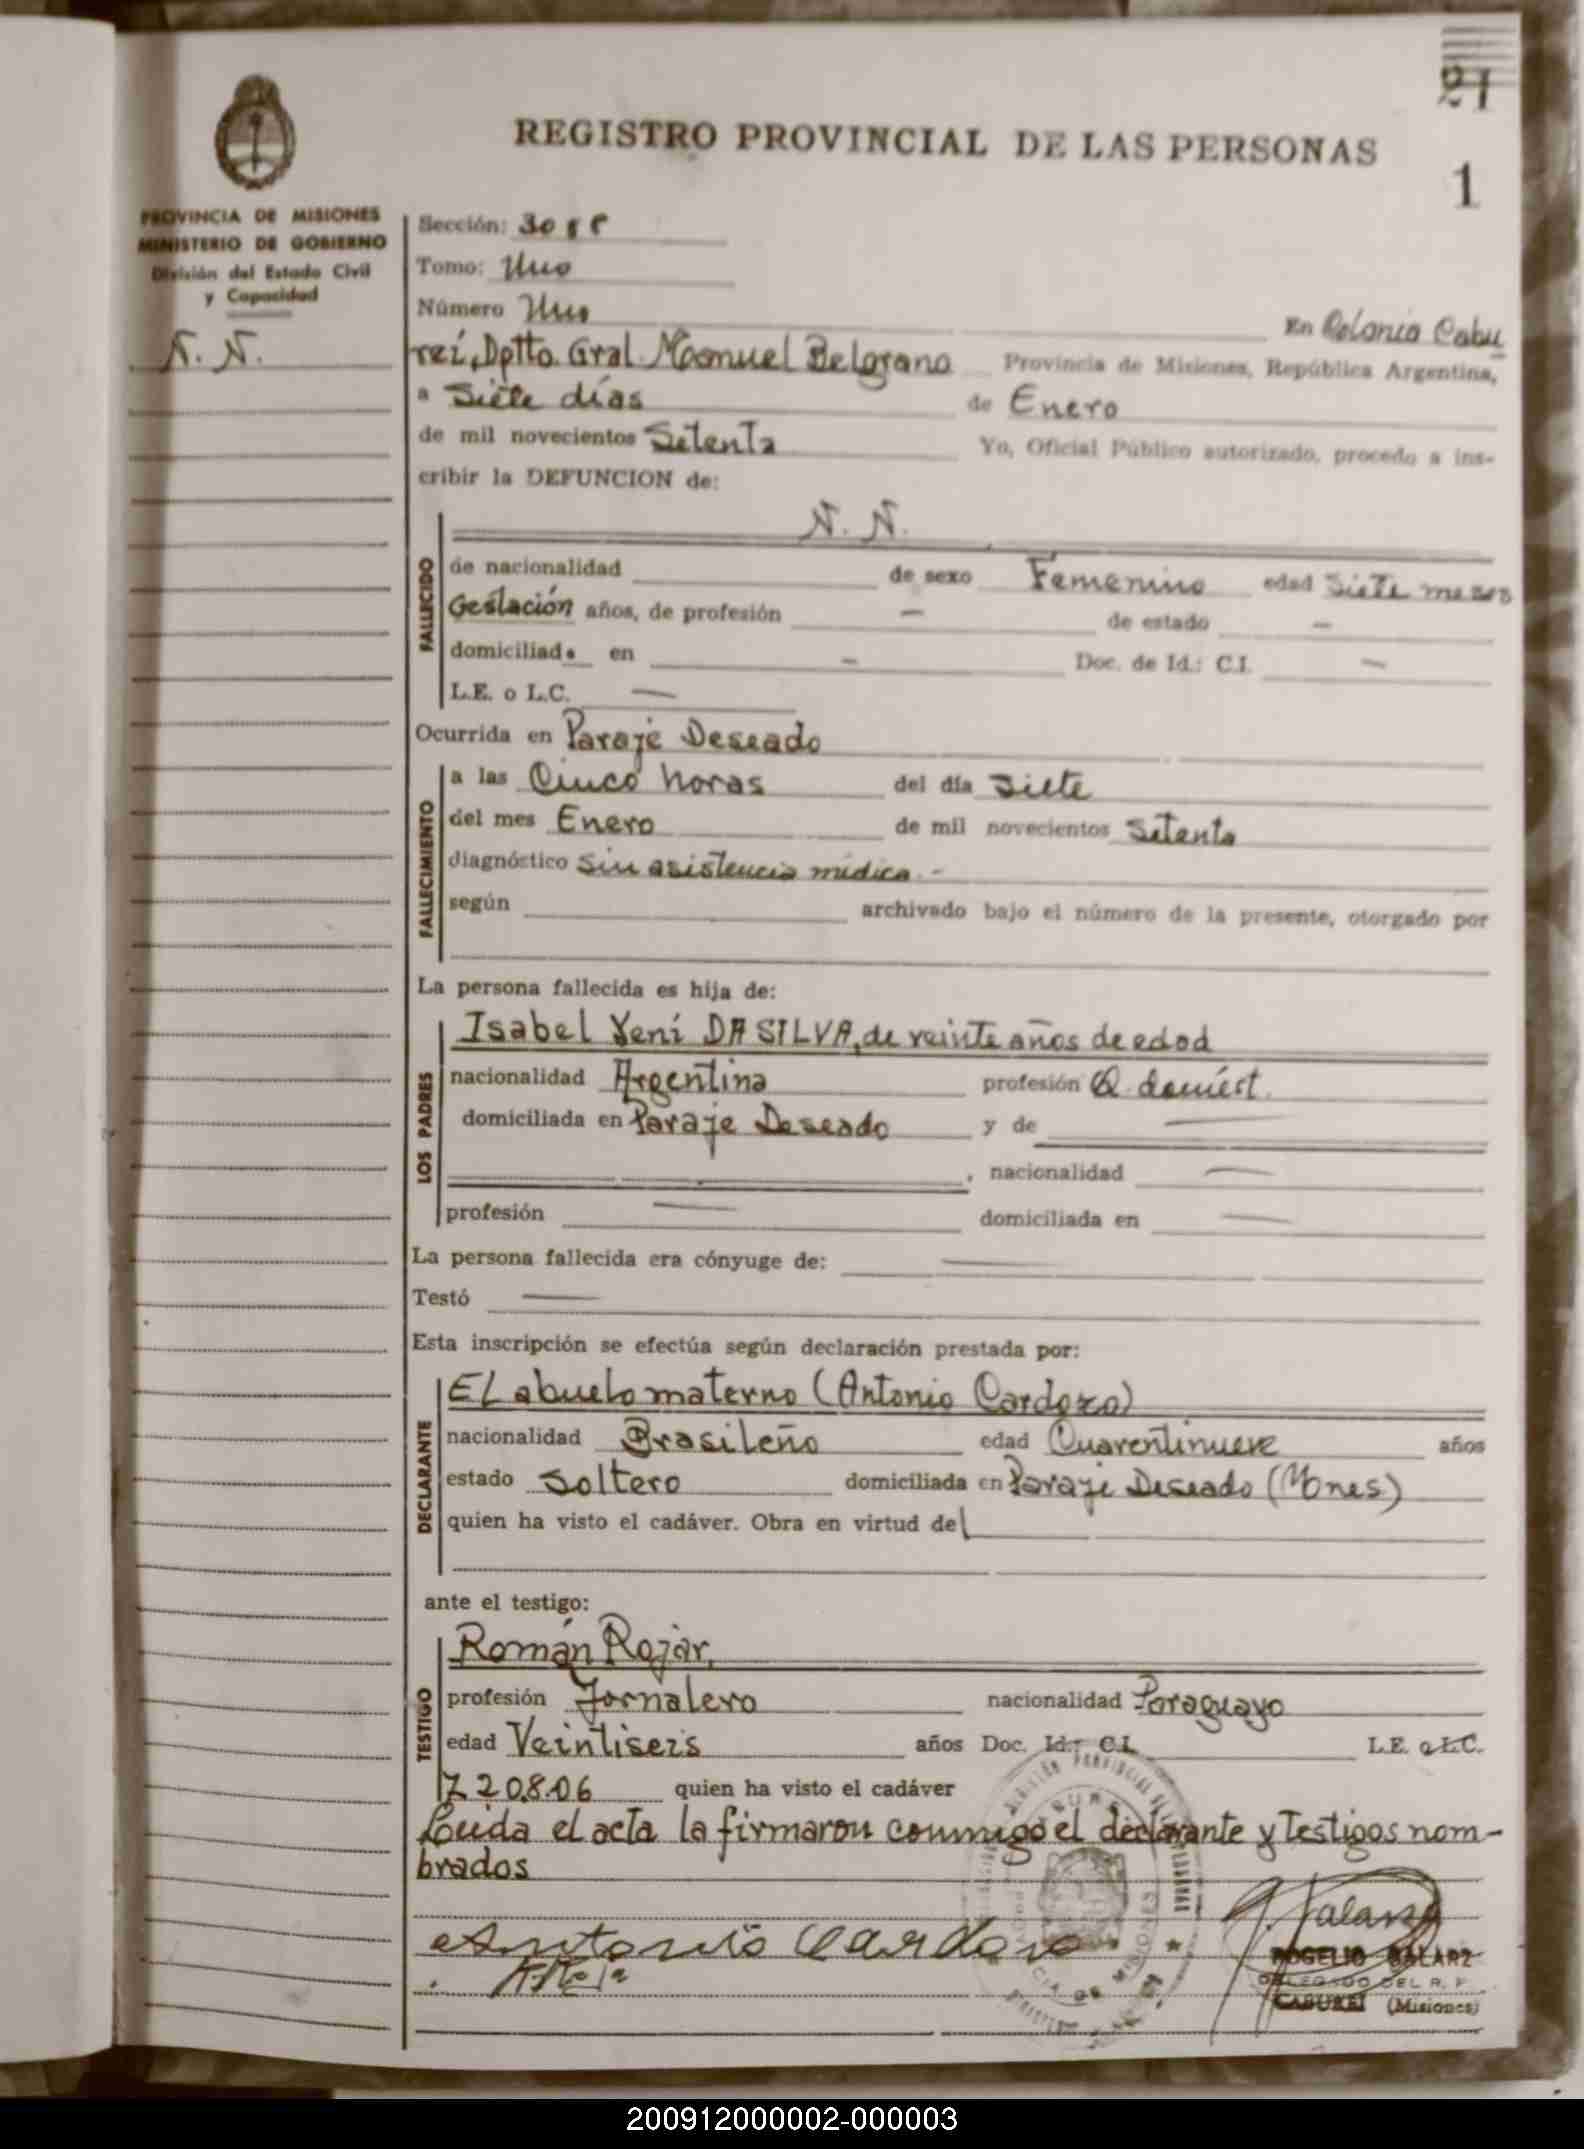 21
REGISTRO PROVINCIAL DE LAS PERSONAS
1
PROVINCIA DE MISIONES
MINISTERIO DE GOBIERNO
División del Estado Civil
y Capacidad
N. N.
Sección:
Tomo: Uno
Número Uno En Colonia Cabu
reí, Dptto. Gral. Manuel Belgrano Provincia de Misiones, República Argentina,
a Siete días de Enero
de mil novecientos Setenta Yo, Oficial Público autorizado, procedo a ins-
cribir la DEFUNCION de:
N. N.
FALLECIDO
de nacionalidad de sexo Femenino edad Siete meses
Gestación años, de profesión — de estado —
domiciliad en — Doc. de Id.: C.I. —
L.E. o L.C. —
Ocurrida en Paraje Deseado
FALLECIMIENTO
a las Cinco horas del día siete
del mes Enero de mil novecientos Setenta
diagnóstico Sin asistencia médica.-
según archivado bajo el número de la presente, otorgado por
La persona fallecida es hija de:
LOS PADRES
Isabel Yení DA SILVA, de veinte años de edad
nacionalidad Argentina profesión Q. domést.
domiciliada en Paraje Deseado y de —
, nacionalidad —
profesión — domiciliada en —
La persona fallecida era cónyuge de: —
Testó —
Esta inscripción se efectúa según declaración prestada por:
DECLARANTE
El abuelo materno (Antonio Cardozo)
nacionalidad Brasileño edad Cuarentinueve años
estado Soltero domiciliada en Paraje Deseado (Mnes)
quien ha visto el cadáver. Obra en virtud de
ante el testigo:
TESTIGO
Román Rojar,
profesión Jornalero nacionalidad Paraguayo
edad Veintiseis años Doc. Id.: C.I. L.E. o L.C.
720806 quien ha visto el cadáver
Leida el acta la firmaron conmigo el declarante y testigos nom-
brados
Antonio Cardozo
ROGELIO GALARZ
DELEGADO DEL R. P.
CABUREI (Misiones)
200912000002-000003